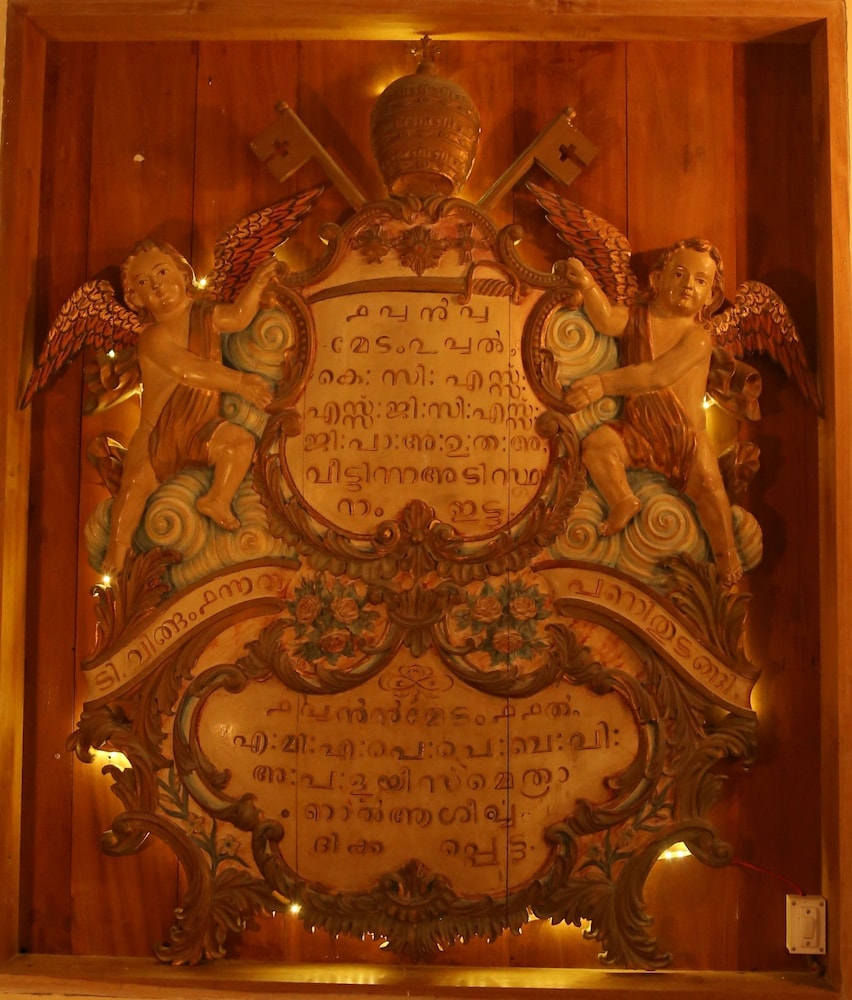 ൧൮൯൮
മേടം൨൮ൽ,
കെ: സി: എസ്സ്:
എസ്സ്:ജി:സി:എസ്സ്:
ജി:പാ:അ:ഉ:ത:അ,
വീട്ടിന്നഅടിസ്ഥാ
നം ഇട്ടു.
ടി.ചിങ്ങം.
പണിതുടങ്ങി.
൧൮൯൯മേടം൧൧ൽ.
എ:മി:എ:പെ:പെ:ബ:വി:
അ:പ:ളൂയിസ്മെത്രാ
നാൽആശീർവ്വ
ദിക്ക പ്പെട്ടു.